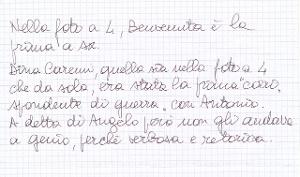 Nella foto a 4, Benvenuta è la
prima a sx.
Dina Caremi, quella sia nella foto a 4
che da sola, era stata la prima "corri-
spondente di guerra" con Antonio.
A detta di Angelo, però non gli andava
a genio, perché verbosa e retorica.